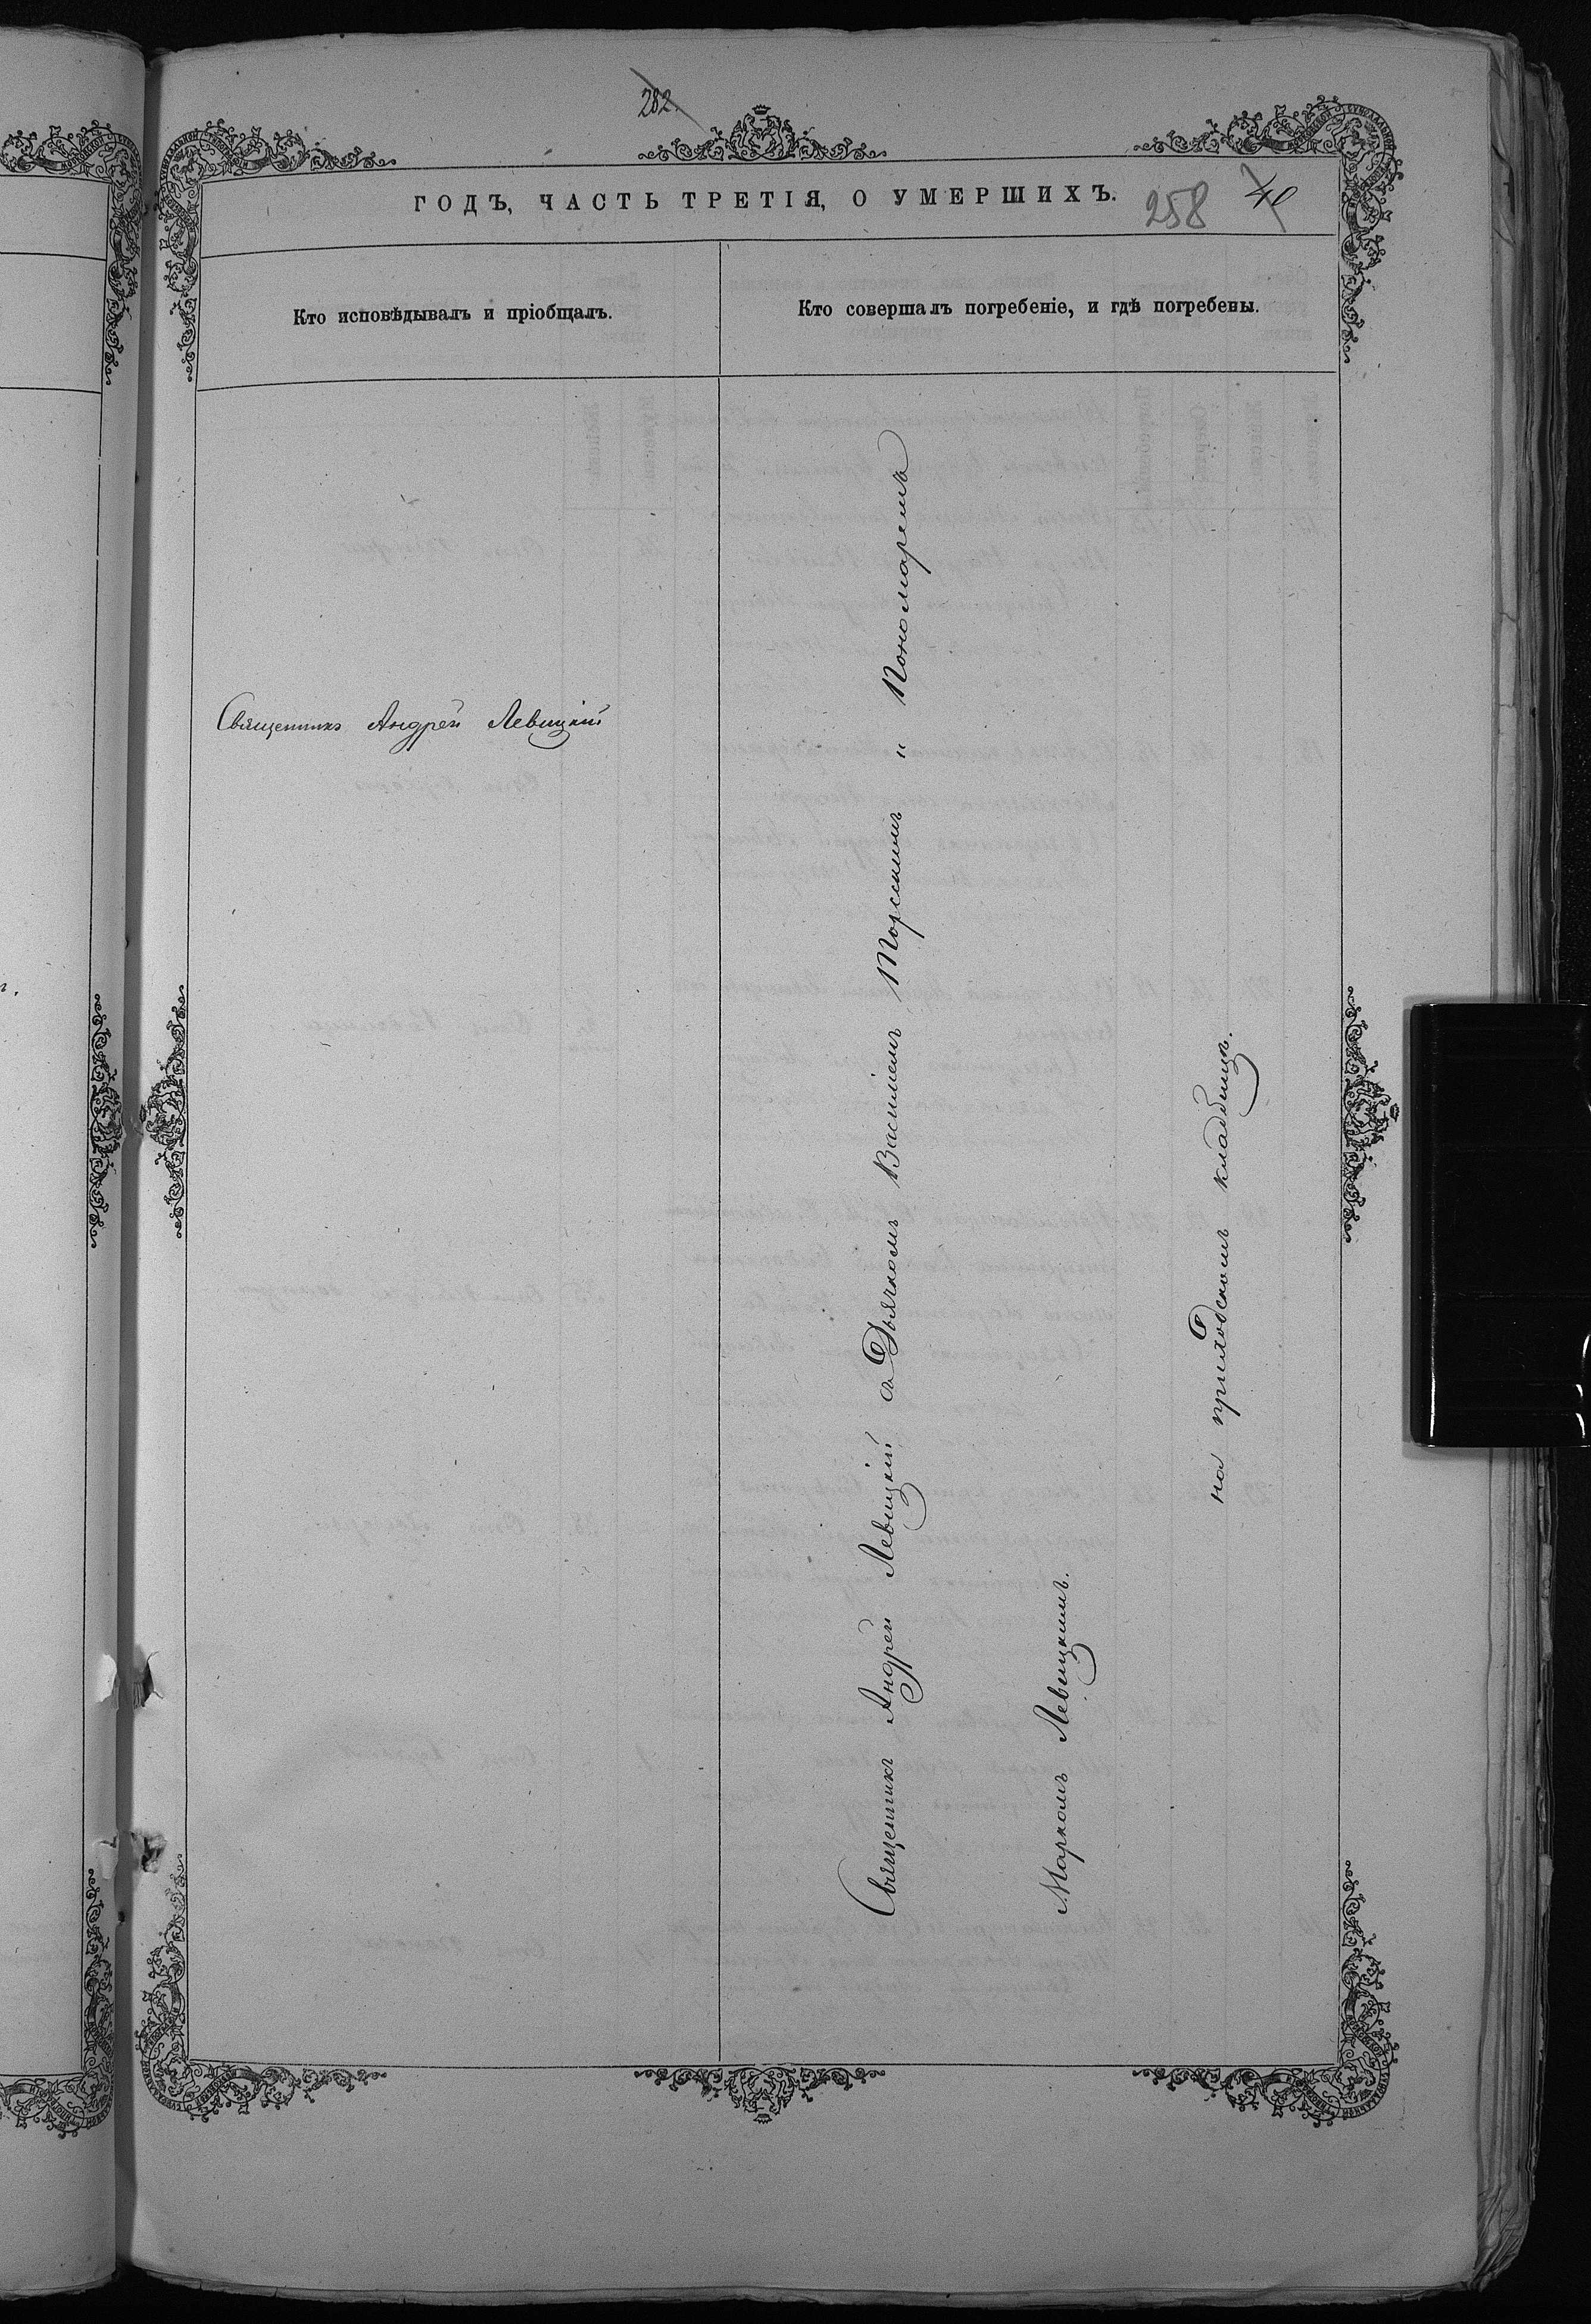 282.
ГОДЪ, ЧАСТЬ ТРЕТІЯ, О УМЕРШИХЪ.
258
40
Кто исповѣдывалъ и пріобщалъ.
Кто совершалъ погребеніе, и гдѣ погребены.
Священникъ Андрей Левицкій
Священникъ Андрей Левицкій съ Дьячкомъ Василіемъ Торскимъ и Пономаремъ
Маркомъ Левицкимъ.
на приходскомъ кладбищѣ.